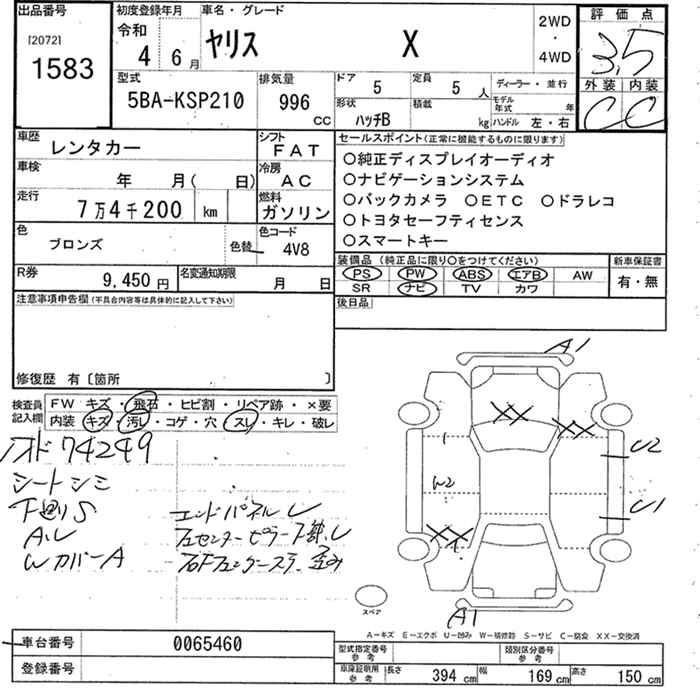 出品番号
[2072]
1583
初度登録年月
令和
4 6月
車名・グレード
ヤリス X
2WD
・
4WD
評価点
3.5
外装 内装
C C
型式
5BA-KSP210
排気量
996
CC
ドア
5
定員
5 人
ディーラー・並行
モデル年式 年
形状
ハッチB
積載 kg
ハンドル 左・右
車歴
レンタカー
シフト
FAT
車検
年 月( 日)
冷房
AC
走行
7万4千200 km
燃料
ガソリン
色
ブロンズ
色替
色コード
4V8
R券
9,450円
名変通知期限
月 日
セールスポイント(正常に機能するものに限ります)
○純正ディスプレイオーディオ
○ナビゲーションシステム
○バックカメラ ○ETC ○ドラレコ
○トヨタセーフティセンス
○スマートキー
装備品(純正品に限り○をつけてください)
PS PW ABS エアB AW
SR ナビ TV カワ
新車保証書
有・無
後日品
注意事項申告欄(不具合内容等は具体的に記入して下さい)
修復歴 有〔箇所 〕
検査員
記入欄
FW キズ・飛石・ヒビ割・リペア跡・×要
内装 キズ・汚レ・コゲ・穴・スレ・キレ・破レ
74249
シートシミ
下廻りS
A.レ
WカバーA
エンドパネルレ
A1
XX
XX
U2
W2
U1
XX
A1
スペア
A-キズ E-エクボ U-凹み W-補修跡 S-サビ C-腐食 XX-交換済
車台番号
0065460
登録番号
型式指定番号
参考
類別区分番号
参考
車庫証明用
参考
長さ 394 cm 幅 169 cm 高さ 150 cm